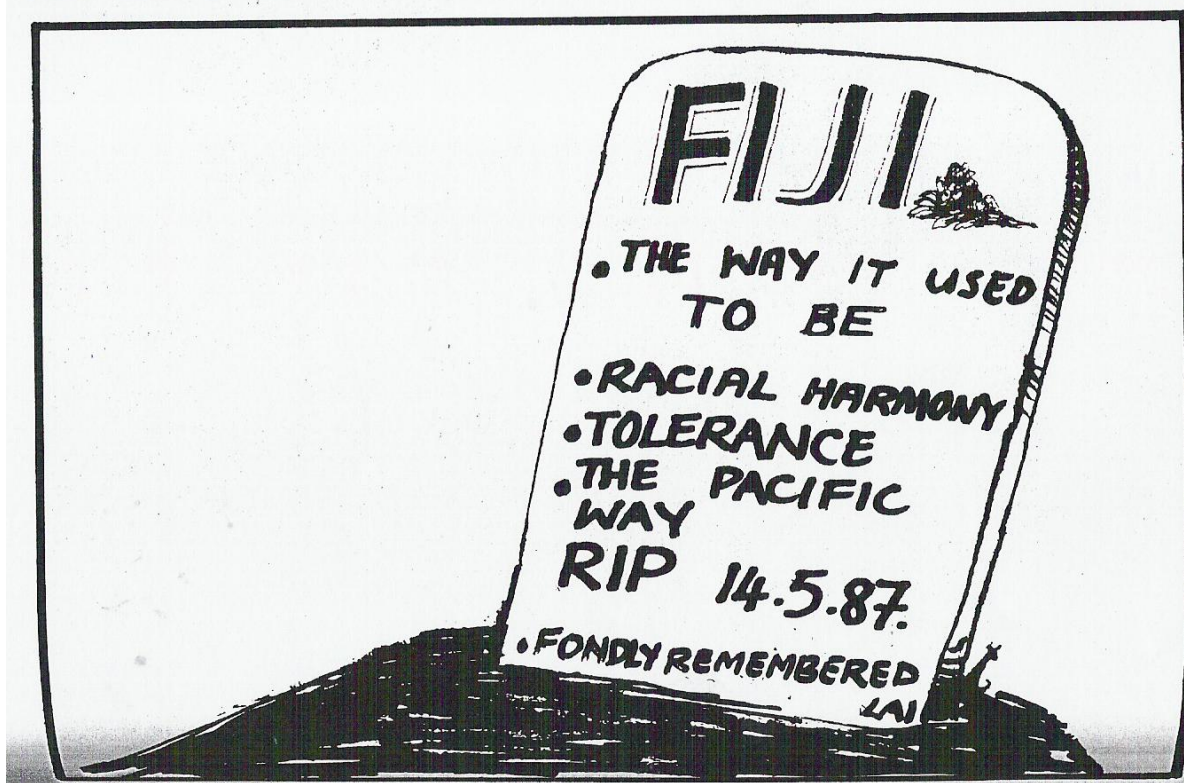 FIJI
• THE WAY IT USED
TO BE
• RACIAL HARMONY
• TOLERANCE
• THE PACIFIC
WAY
RIP 14.5.87.
• FONDLY REMEMBERED
LAI